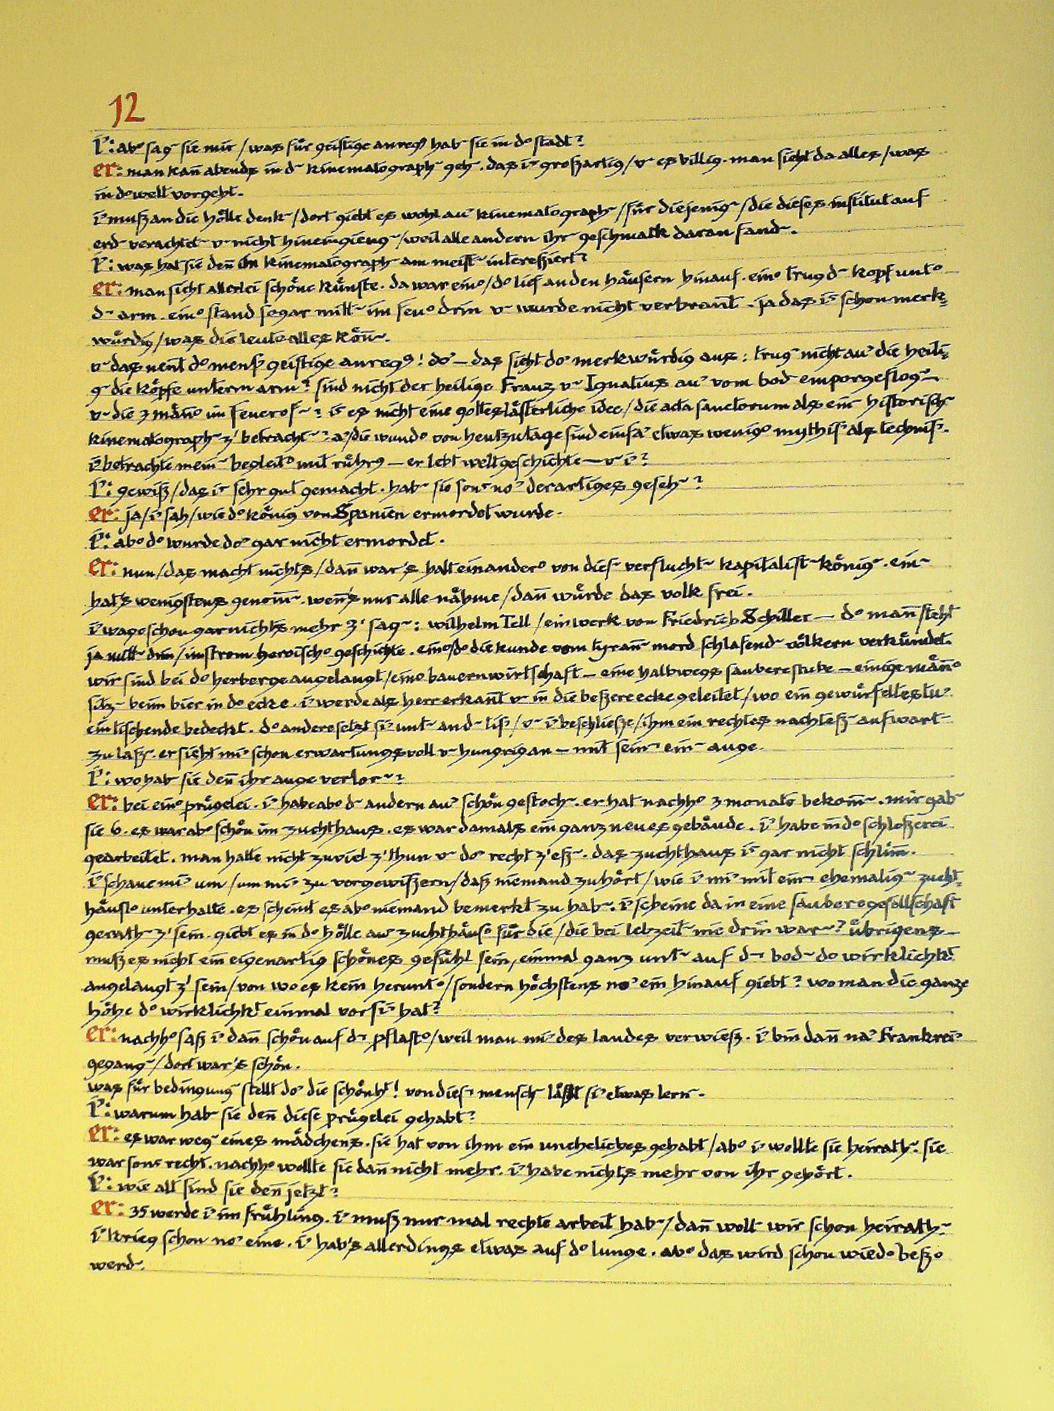 12
I: abo sag sie mir / was für geistige anreg hab sie in do stadt?
er: man kan̄ abends in d kinematograph geh. das i großartig / v es billig. man sieht da alles / was
in do welt vorgeht.
i muß an die hölle denk / dort giebt es wohl au kinematograph / für diejenig / die dieses institut auf
erd verachtet v nicht hineingieng / weil alle andern ihr geschmakk daran fand.
I: was hat sie den̄ im kinematograph am meist interessiert?
er: man sieht allerlei schöne künste. da war eino / do lief an den häusern hinauf. eino trug d kopf unto
d arm. eino stand sogar mitt im feuo drin v wurde nicht verbran̄t. ja das i schon merk=
würdig / was die leute alles kön̄.
v das nen̄t do mensch geistige anreg! do – das sieht do merkwürdig aus: trug nicht au die heili=
g die köpfe unterm arm? sind nicht der heilige Franz v Ignatius au vom bod emporgeflog –
v die 3 män̄o im feuerof? is es nicht eine gotteslästerliche idee / die acta sanctorum als ein historisch
kinematograph z' betracht? a / die wundo von heutzutage sind einfa etwas wenigo mythis als technis.
i betrachte mein begleito mit rührg – er lebt weltgeschichte – v i?
I: gewiß / das i sehr gut gemacht. hab sie sons no derartiges geseh?
er: ja / i sah / wie do könig von Spanien ermordet wurde.
I: abo do wurde do gar nicht ermordet.
er: nun / das macht nichts / dan̄ war's halt ein andero von dies verflucht kapitalist könig. ein
hat's wenigstens genom̄. wen̄s nur alle nähme / dan̄ würde das volk frei.
i wage schon gar nichts mehr z' sag: wilhelm Tell / ein werk von Friedrich Schiller – do man̄ steht
ja mitt drin / im strom heroischo geschichte. eino / do die kunde vom tyran̄ mord schlafend völkern verkündet.
wir sind bei do herberge angelangt / eino bauernwirtschaft – eine halbwegs saubere stube – einige män̄o
sitz beim bier in do ecke. i werde als herr erkan̄t v in die beßere ecke geleitet / wo ein gewürfeltes tu
ein tischende bedeckt. do andere setzt si unt and tis / v i beschließe / ihm ein rechtes nachteß aufwart
zu laß. er sieht mi schon erwartungsvoll v hungrig an – mit sein ein auge.
I: wo hab sie den̄ ihr auge verlor?
er: bei eino prügelei. i habe abo d andern au schön gestoch. er hat nachho 3 monate bekom̄. mir gab
sie 6. es war abo schön im zuchthaus. es war damals ein ganz neues gebäude. i habe in do schloßerei
gearbeitet. man hatte nicht zuviel z' thun v do recht z' eß. das zuchthaus i gar nicht schlim̄.
i schaue mi um / um mi zu vergewißern / daß niemand zuhört / wie i mi mit ein ehemalig zucht=
häuslo unterhalte. es scheint es abo niemand bemerkt zu hab. i scheine da in eine saubere gesellschaft
gerath z' sein. giebt es in do hölle au zuchthäuso für die / die bei lebzeit nie drin war? übrigens –
muß es nicht ein eigenartig schönes gefühl sein, einmal ganz unt auf d bod do wirklichkt
angelangt z' sein / von wo es kein herunto / sondern höchstens no ein hinauf giebt? wo man die ganze
höhe do wirklichkt einmal vor si hat?
er: nachho saß i dan̄ schön auf d pflasto / weil man mi des landes verwieß. i bin dan̄ na Frankrei
gegang / dort war's schön.
was für bedingung stellt do die schönht! von dies mensch läßt si etwas lern.
I: warum hab sie den̄ diese prügelei gehabt?
er: es war weg eines mädchens. sie hat von ihm ein uneheliches gehabt / abo i wollte sie heirath. sie
war sons recht. nachho wollte sie dan̄ nicht mehr. i habe nichts mehr von ihr gehört.
I: wie alt sind sie den̄ jetzt?
er: 35 werde i im frühling. i muß nur mal rechte arbeit hab / dan̄ woll wir schon heirath.
i krieg schon no eine. i hab's allerdings etwas auf do lunge. abo das wird schon wiedo beßo
werd.